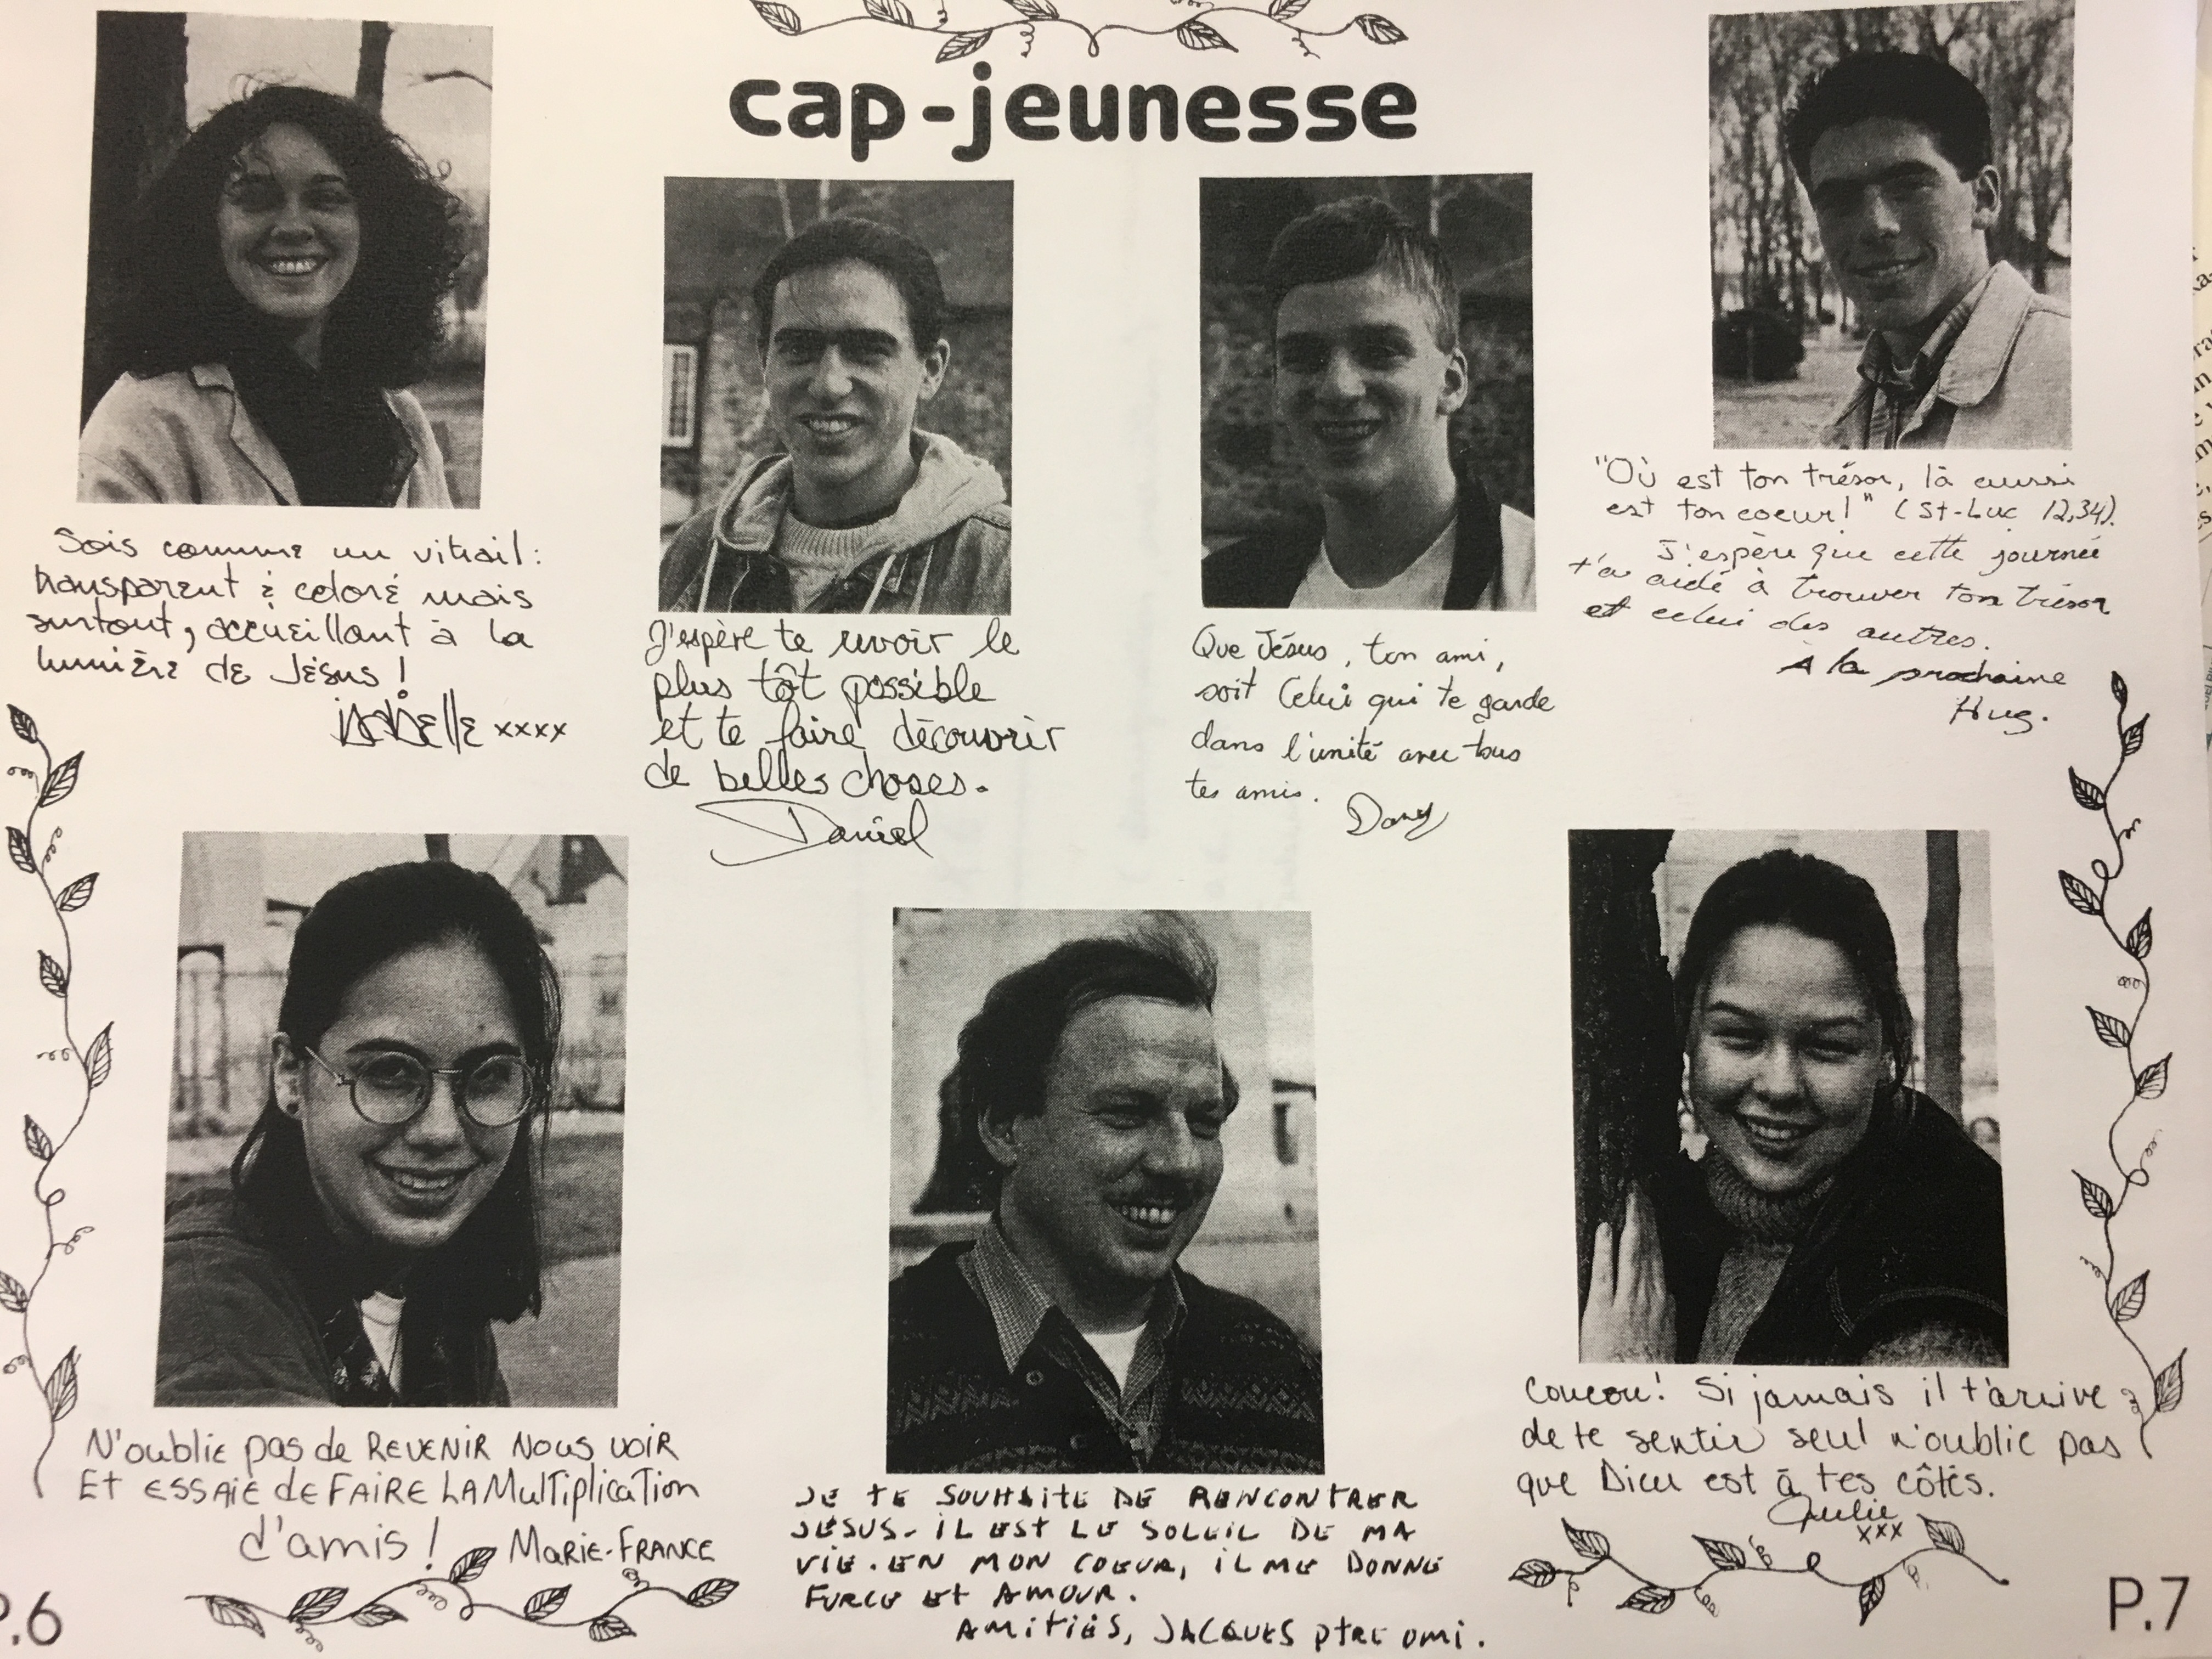 cap-jeunesse
Sois comme un vitrail:
transparent & coloré mais
surtout, accueillant à la
lumière de Jésus !
isabelle xxxx
J'espère te revoir le
plus tôt possible
et te faire découvrir
de belles choses.
Daniel
Que Jésus, ton ami,
soit Celui qui te garde
dans l'unité avec tous
tes amis.
Dany
"Où est ton trésor, là aussi
est ton coeur!" (St-Luc 12,34).
J'espère que cette journée
t'a aidé à trouver ton trésor
et celui des autres.
A la prochaine
Hug.
N'oublie pas de REVENIR NOUS VOIR
Et ESSAIE de FAIRE LA MultiplicaTion
d'amis !
MARIE-FRANCE
JE TE SOUHAITE DE RENCONTRER
JÉSUS. IL EST LE SOLEIL DE MA
VIE. EN MON COEUR, IL ME DONNE
FORCE ET AMOUR.
AMITIÉS, JACQUES ptre omi.
Coucou! Si jamais il t'arrive
de te sentir seul n'oublie pas
que Dieu est à tes côtés.
Julie
xxx
P.6
P.7